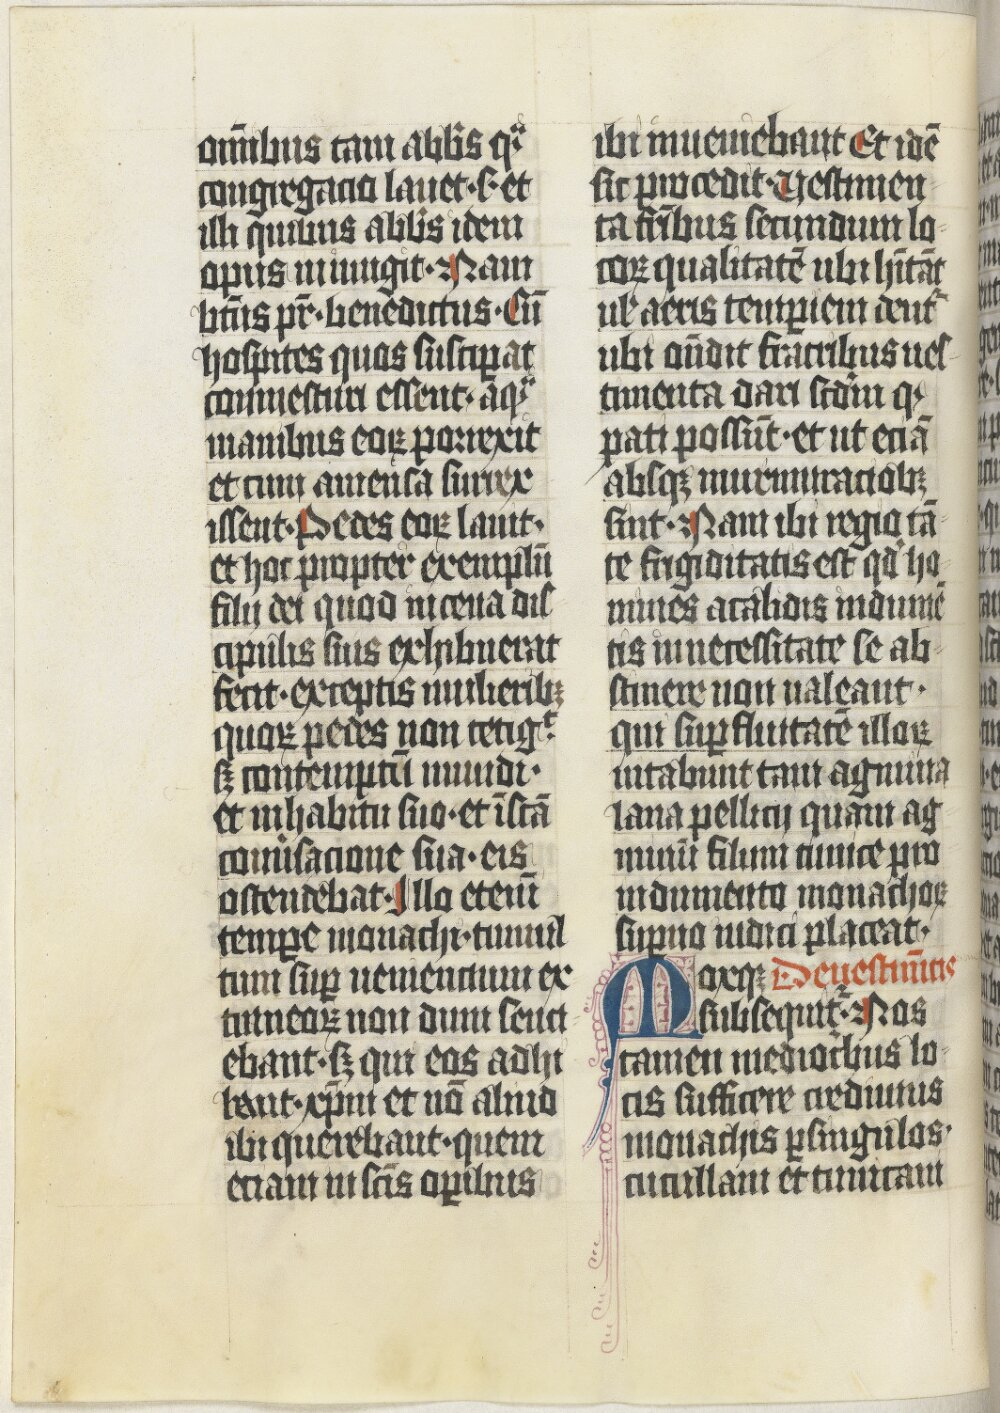 om̄ibus tam abb̄s qᷓ
congregacio lauet · s · et
illi quibus abb̄s idem
opus iniungit · Nam
bt̄us pr̄ · benedictus · Cū
hospites quos suscipꝫat
conmesturi essent · aqᷓ
manibus eoꝝ porrexit
et cum amensa surrex
issent · Pedes eoꝝ lauit ·
et hoc propter exemplū
filii dei quod in cena dis
cipulis suis exhibuerat
fecit · exceptis mulieribꝫ
quoꝝ pedes non tetigᵗ ·
sꝫ contemptū mundi ·
et in habitu suo · et ī sc̄a
conu̓sacione sua · eis
ostendebat · Illo etenī
tempꝫe monachi · tumul
tum suꝑ uemencium ex
traneoꝝ non dum senci
ebant · sꝫ qui eos adhi
bant · xp̄m et nō aliud
ibi querebant · quem
eciam in sc̄is oꝑibus
ibi inueniebant Et idē
sic procedit · Vestimen
ta fr̄ibus secundum lo-
coꝝ qualitatē ubi hītāt
ul̓ aeris temꝑiem dentᷣ
ubi on̄dit fratribus ues-
timenta dari scd̓m qꝫ
pati possūt · et ut eciā
absqꝫ murmuraciōbꝫ
sint · Nam ibi regio tā
te frigiditatis est qd̓ ho-
mines acalidis indumē
tis innecessitate se ab-
stinere non ualeant ·
qui suꝑfluitatē illoꝝ
uitabunt tam agnina
lana pellicii quam ag
ninū filum tunice pro
indumento monachoꝝ
suꝑno iudici placeat ·
Moxqꝫ De uestimētis
subsequitᷣ · Nos
tamen mediocribus lo-
cis sufficere credimus
monachis ꝑ singulos ·
cucullam et tunicam